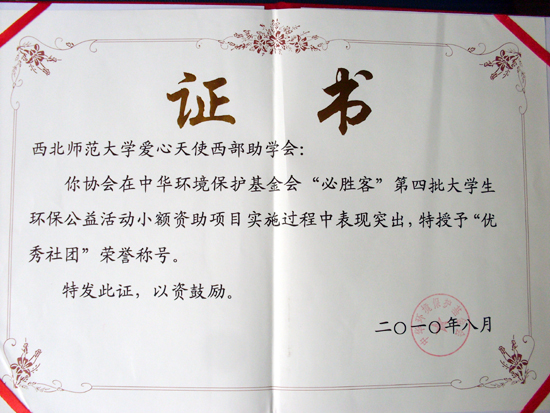 证 书
西北师范大学爱心天使西部助学会：
你协会在中华环境保护基金会“必胜客”第四批大学生
环保公益活动小额资助项目实施过程中表现突出，特授予“优
秀社团”荣誉称号。
特发此证，以资鼓励。
二〇一〇年八月